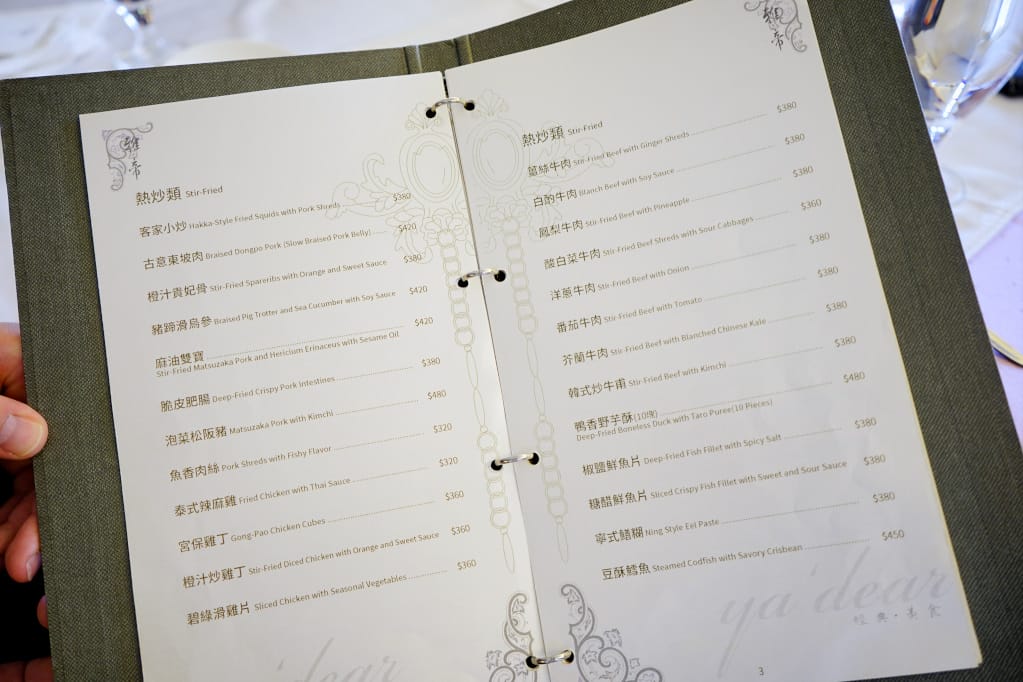 雅帝
熱炒類 Stir-Fried
客家小炒 Hakka-Style Fried Squids with Pork Shreds $380
古意東坡肉 Braised Dongpo Pork (Slow Braised Pork Belly) $420
橙汁貴妃骨 Stir-Fried Spareribs with Orange and Sweet Sauce $380
豬蹄滑烏參 Braised Pig Trotter and Sea Cucumber with Soy Sauce $420
麻油雙寶 $420
Stir-Fried Matsuzaka Pork and Hericium Erinaceus with Sesame Oil
脆皮肥腸 Deep-Fried Crispy Pork Intestines $380
泡菜松阪豬 Matsuzaka Pork with Kimchi $480
魚香肉絲 Pork Shreds with Fishy Flavor $320
泰式辣麻雞 Fried Chicken with Thai Sauce $320
宮保雞丁 Gong-Pao Chicken Cubes $360
橙汁炒雞丁 Stir-Fried Diced Chicken with Orange and Sweet Sauce $360
碧綠滑雞片 Sliced Chicken with Seasonal Vegetables $360
dear
雅帝
熱炒類 Stir-Fried
薑絲牛肉 Stir-Fried Beef with Ginger Shreds $380
白酌牛肉 Blanch Beef with Soy Sauce $380
鳳梨牛肉 Stir-Fried Beef with Pineapple $380
酸白菜牛肉 Stir-Fried Beef Shreds with Sour Cabbages $360
洋蔥牛肉 Stir-Fried Beef with Onion $380
番茄牛肉 Stir-Fried Beef with Tomato $380
芥蘭牛肉 Stir-Fried Beef with Blanched Chinese Kale $380
韓式炒牛肉 Stir-Fried Beef with Kimchi $380
鴨香野芋酥(10塊) $480
Deep-Fried Boneless Duck with Taro Puree(10 Pieces)
椒鹽鮮魚片 Deep-Fried Fish Fillet with Spicy Salt $380
糖醋鮮魚片 Sliced Crispy Fish Fillet with Sweet and Sour Sauce $380
寧式鱔糊 Ning Style Eel Paste $380
豆酥鱈魚 Steamed Codfish with Savory Crisbean $450
ya'dear
經典・美食
3